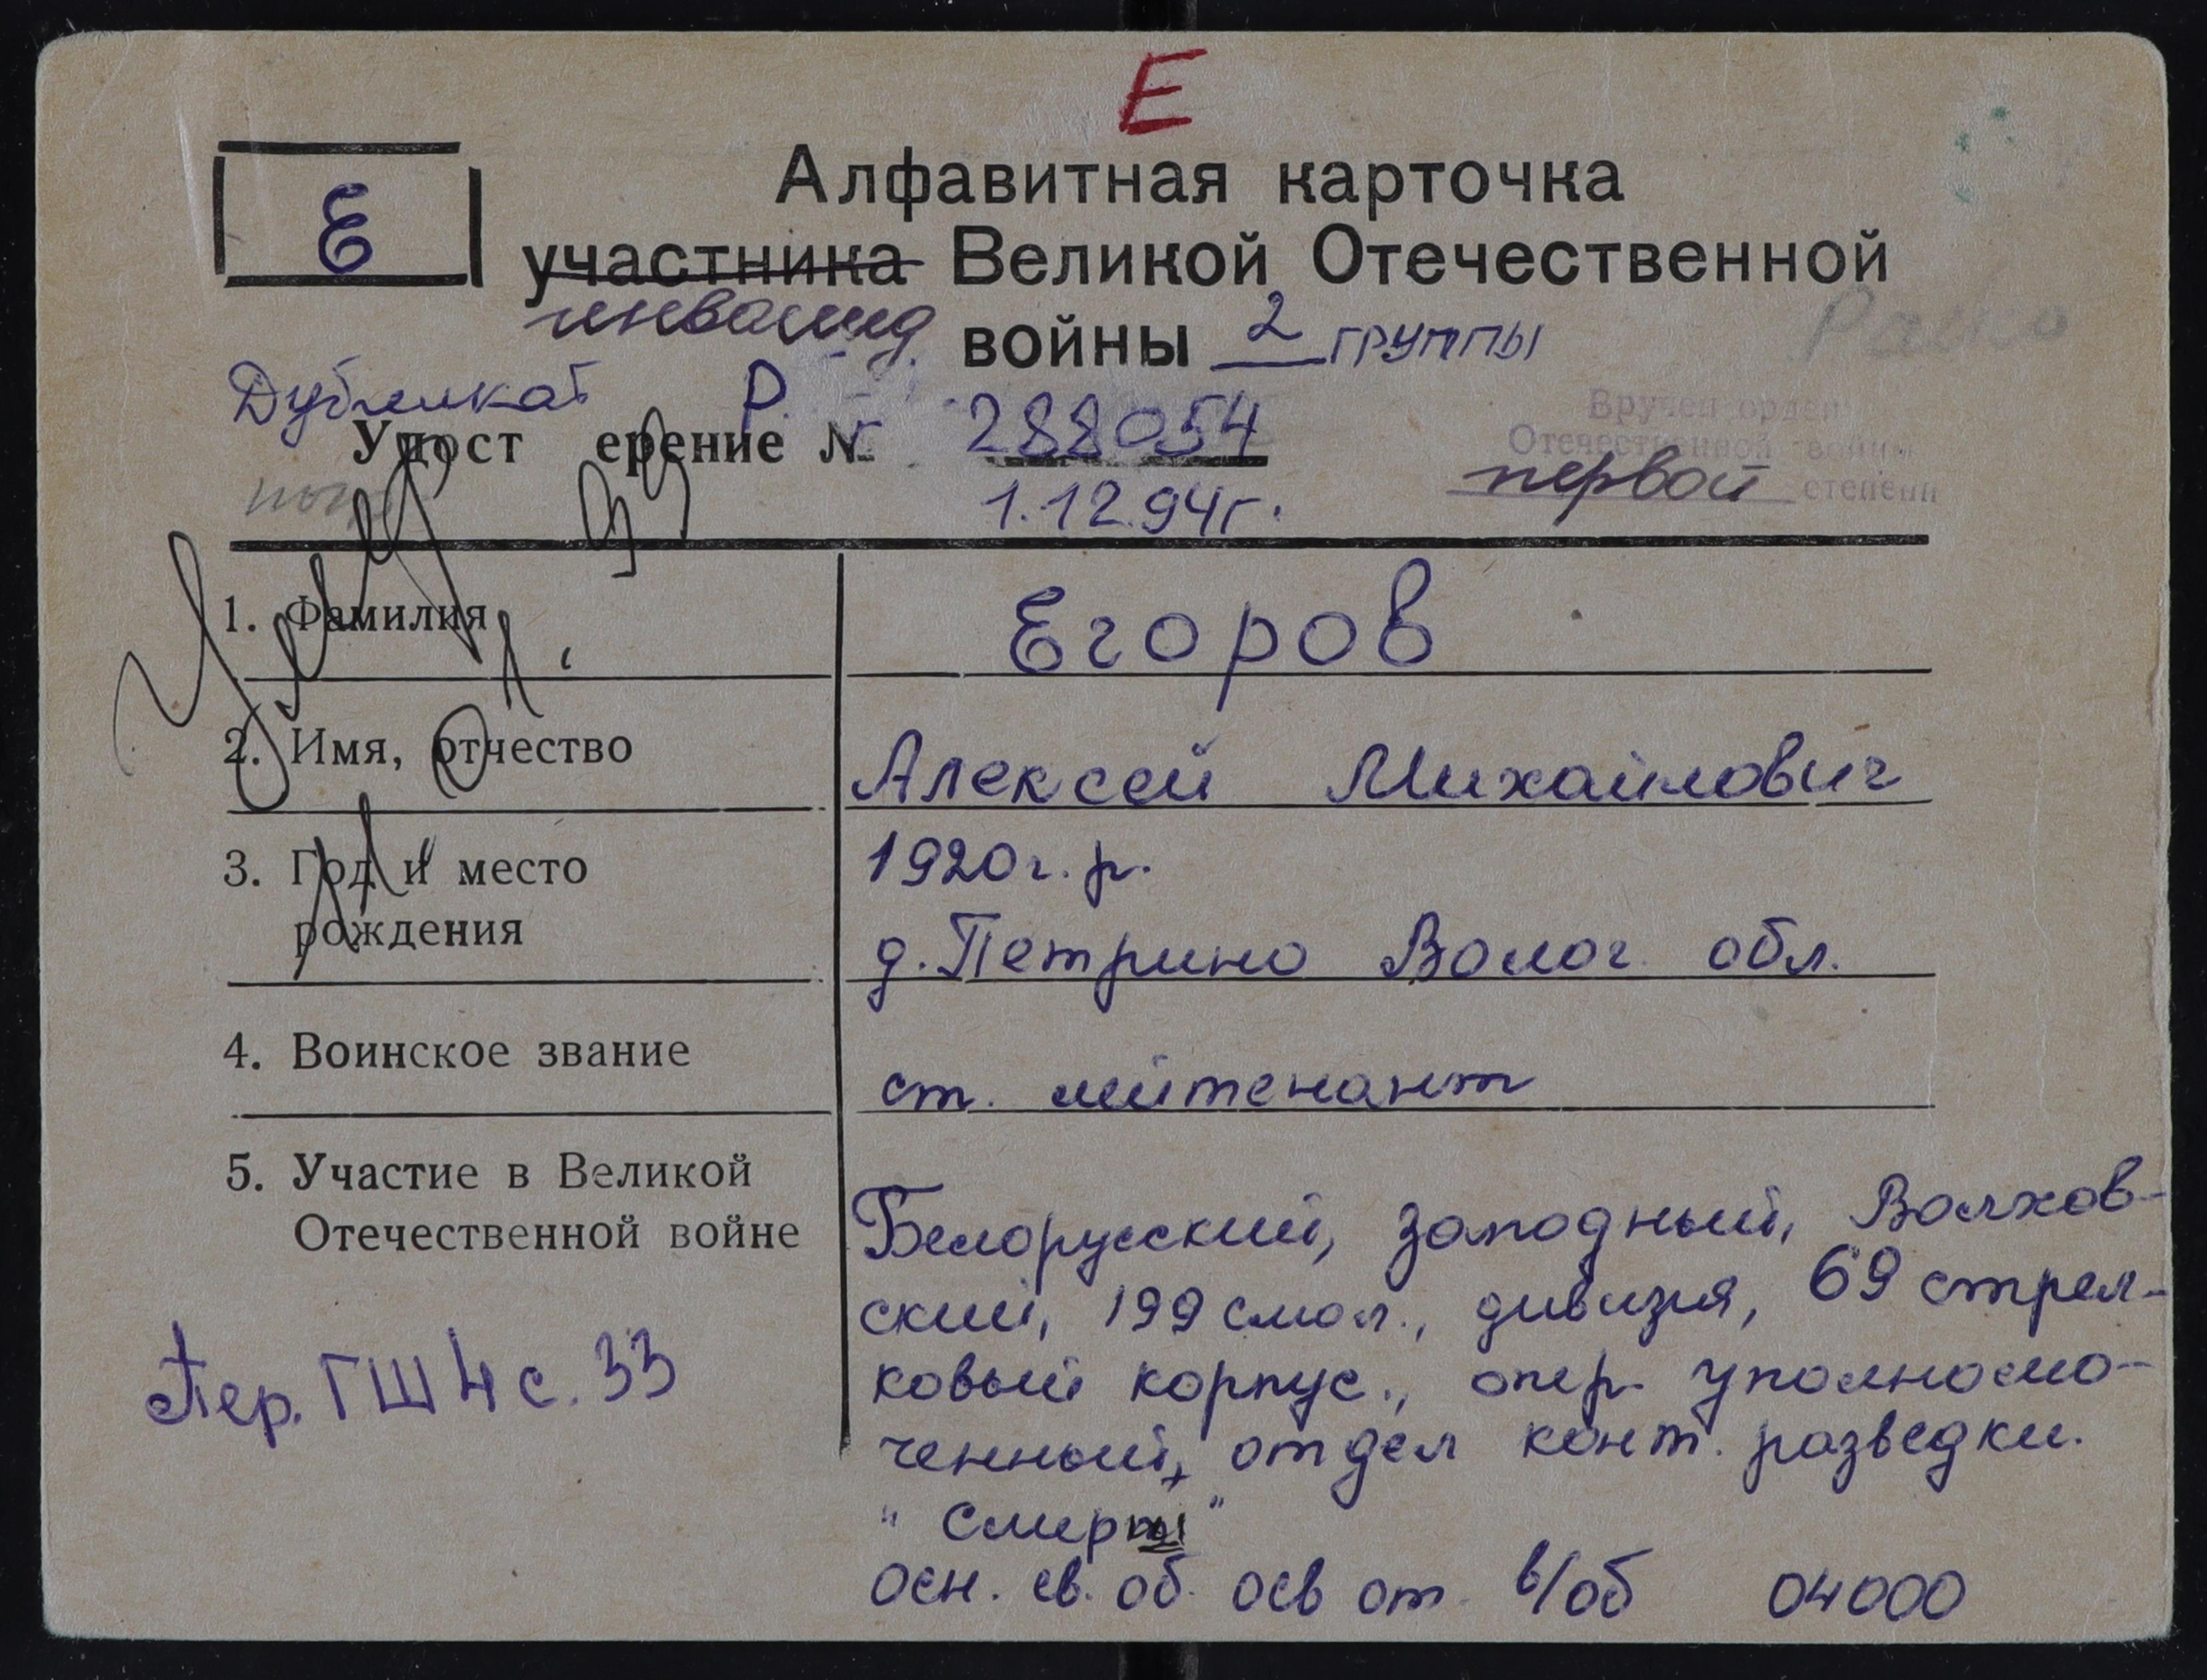 Е
Е
Алфавитная карточка
участника Великой Отечественной
инвалид войны 2 группы
Рано
Дубликат Р.
Удост ерение № 288054
Вручен орден
Отечественной войны
первой степени
1.12.94г.
1. Фамилия
Егоров
2. Имя, отчество
Алексей Михайлович
3. Год и место
рождения
1920г.р.
д. Петрино Волог. обл.
4. Воинское звание
ст. лейтенант
5. Участие в Великой
Отечественной войне
Белорусский, западный, Волхов-
ский, 199 смол., дивизия, 69 стрел-
ковый корпус., опер. уполномо-
ченный, отдел конт. разведки.
"Смерш"
осн. св. об. осв от в/об 04000
Пер. ГШ 4 с. 33